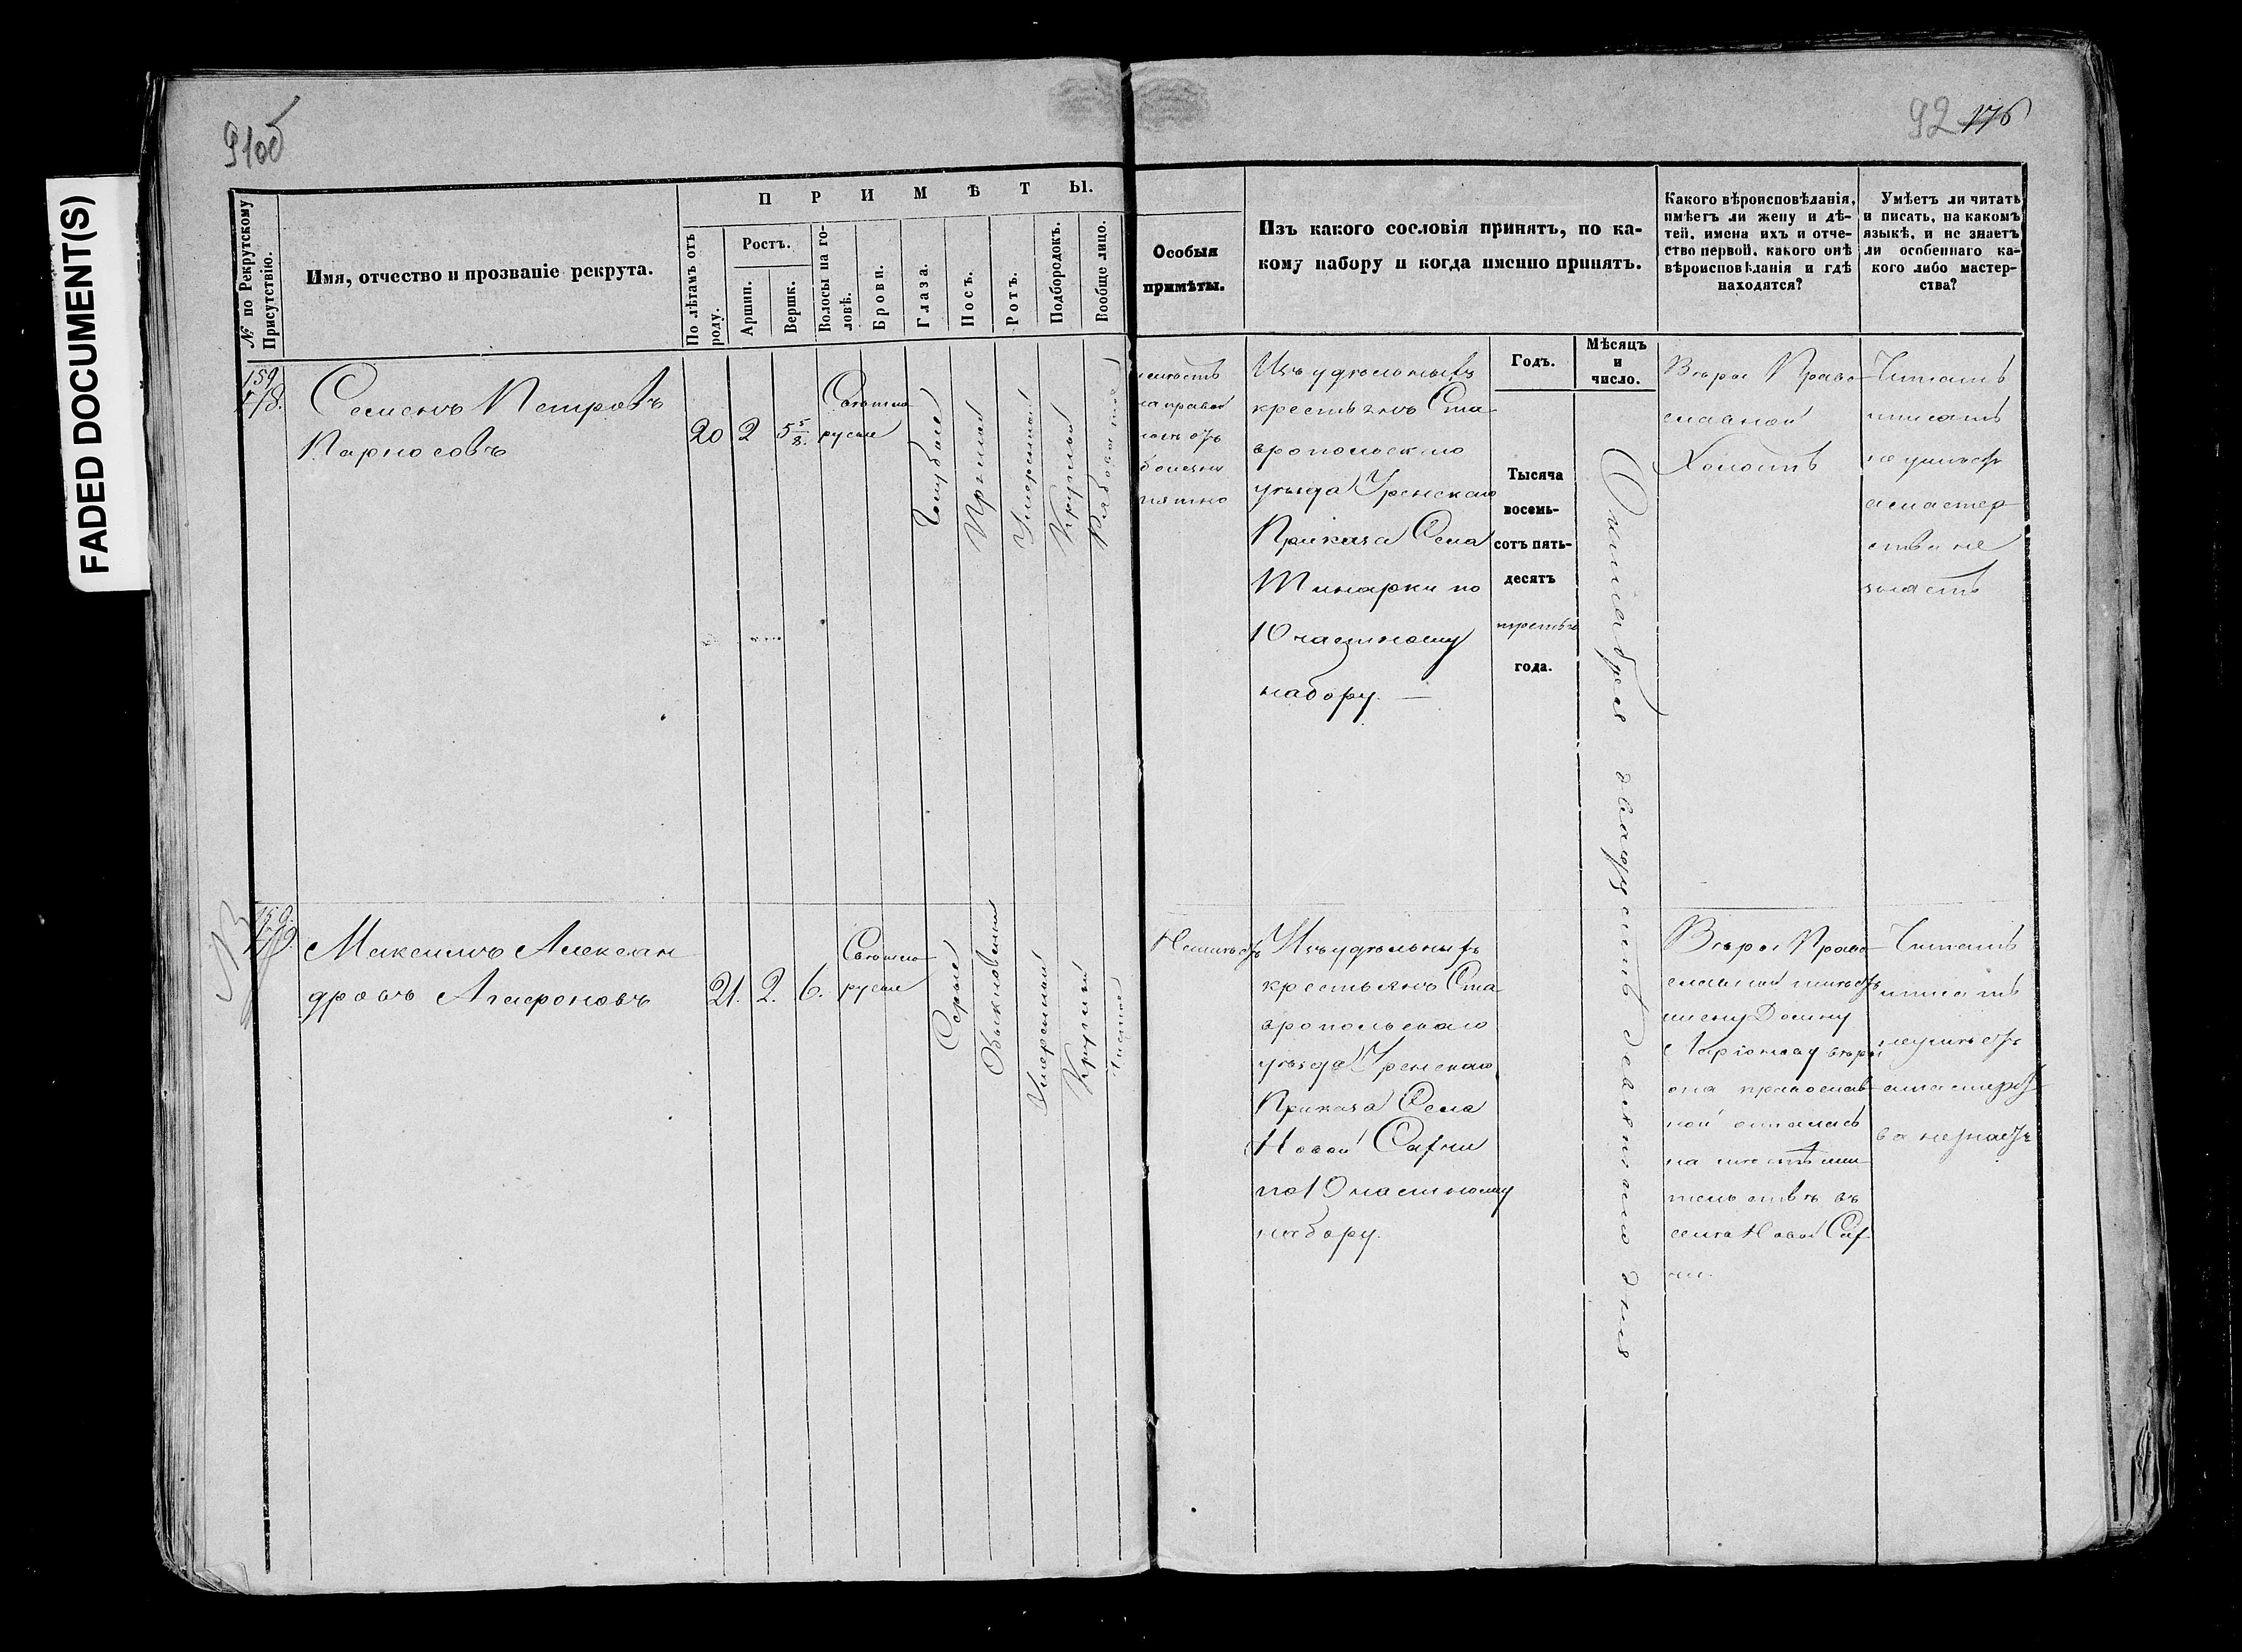 FADED DOCUMENT(S)
91об
92 176
№ по Рекрутскому
Присутствію.
Имя, отчество и прозваніе рекрута.
П Р И М Ѣ Т Ы.
По лѣтамъ отъ
роду.
Ростъ.
Аршин.
Вершк.
Волосы на го-
ловѣ.
Брови.
Глаза.
Носъ.
Ротъ.
Подбородокъ.
Вообще лицо.
Особыя
примѣты.
Изъ какого сословія принятъ, по ка-
кому набору и когда именно принятъ.
Какого вѣроисповѣданія,
имѣетъ ли жену и дѣ-
тей, имена ихъ и отче-
ство первой, какого онѣ
вѣроисповѣданія и гдѣ
находятся?
Умѣетъ ли читать
и писать, на какомъ
языкѣ, и не знаетъ
ли особеннаго ка-
кого либо мастер-
ства?
Годъ.
Мѣсяцъ
и
число.
159
Семенъ Петровъ
Парносовъ
20
2
5 5/8.
Свѣтло
русые
Голубые
Прямой
Умеренный
Круглый
Рябоватое
на правой
пятно
Изъ удѣльныхъ
крестьянъ Ста
вропольскаго
уѣзда Уренскаго
Приказа Села
Тинарки по
10 частному
набору. —
Тысяча
восемь-
сотъ пять-
десятъ
третьяго
года.
Октября двадцать девятаго дня
Вѣры Право
славной
Холостъ
Читать
писать
не умѣетъ
а мастер
ства не
знаетъ
Максимъ Алексан
дровъ Агафоновъ
21.
2.
6.
Свѣтло
русые
Серые
Обыкновенный
Умеренный
Круглый
Чистое
Неимѣетъ
Изъ удѣльныхъ
крестьянъ Ста
вропольскаго
уѣзда Уренскаго
Приказа Села
Новой Сахчи
по 10 частному
набору.
Вѣры Право
славной имѣетъ
жену Домну
Ларіонову вѣры
она православ
ной осталась
на мѣстѣ жи
тельствѣ въ
селѣ Новой Сах
чи.
Читать
писать
неумѣетъ
а мастерст
ва незнаетъ